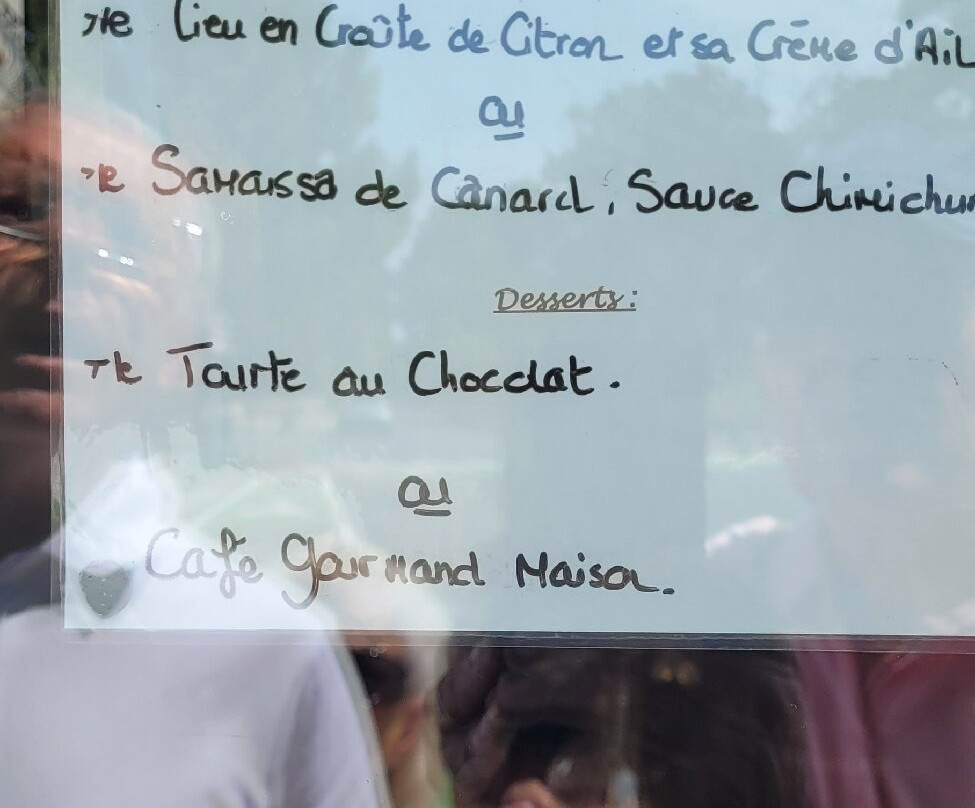 Lieu en Croûte de Citron et sa Crème d'Ail
ou
Samoussa de Canard, Sauce Chimichur
Desserts :
Tourte au Chocolat.
ou
Café gourmand Maison.